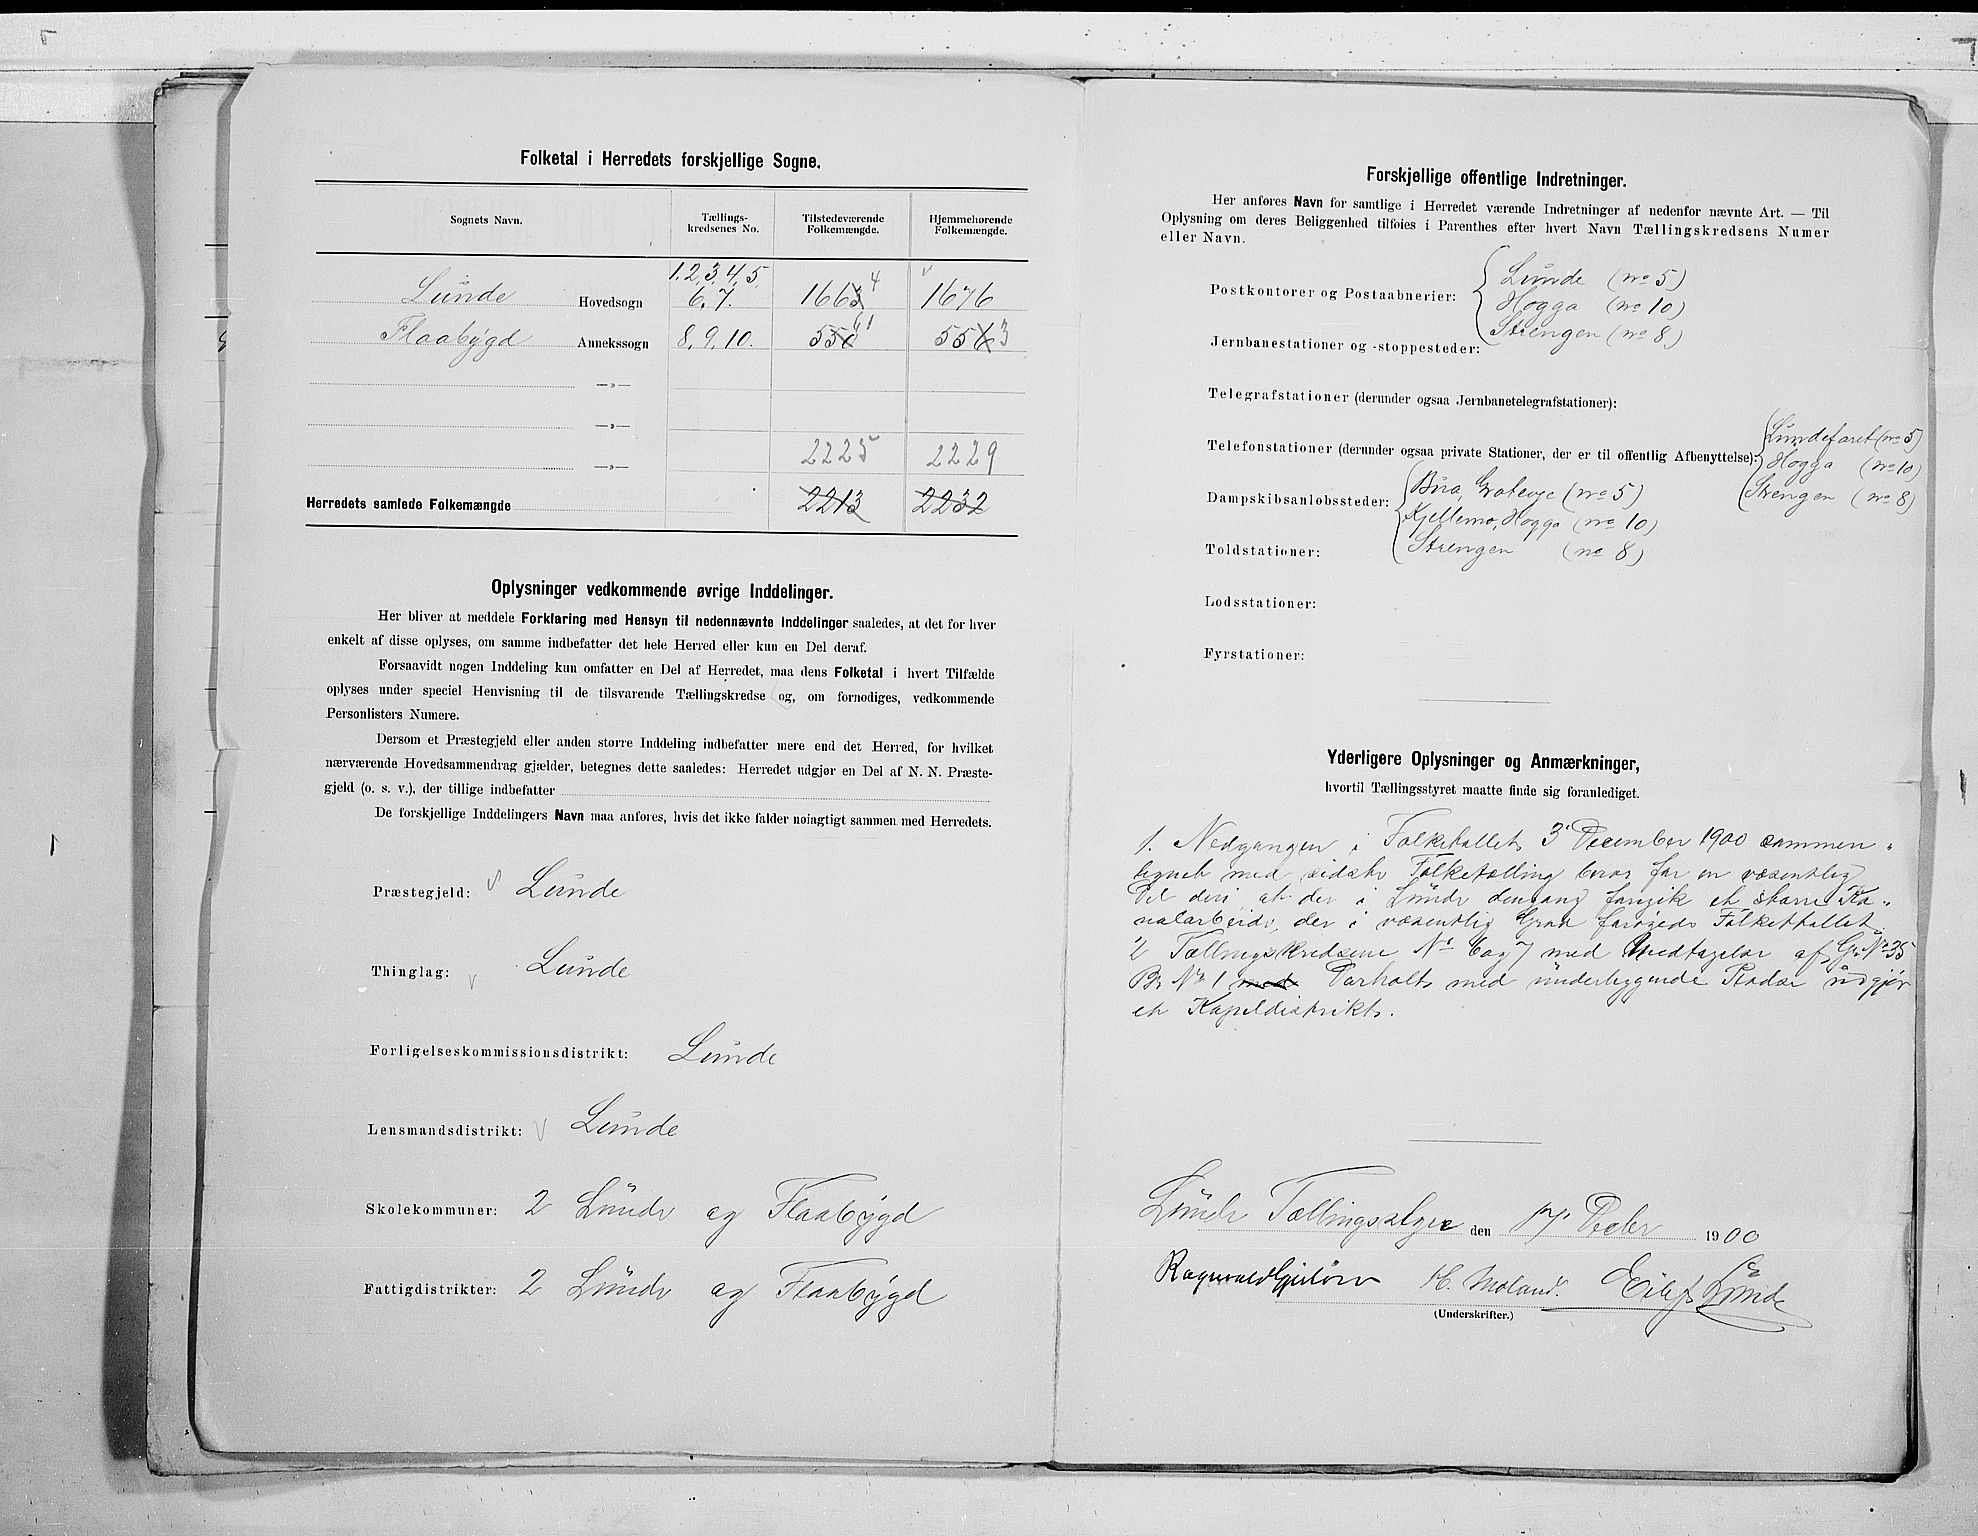 Folketal i Herredets forskjellige Sogne.
Sognets Navn.
Tællings-
kredsenes No.
Tilstedeværende
Folkemængde.
Hjemmehørende
Folkemængde.
1, 2, 3, 4, 5,
Lunde Hovedsogn 6, 7. 1663 4 1676
Flaabygd Annekssogn 8, 9, 10. 550 61 556 3
—»—
—»—
—»— 2225 2229
Herredets samlede Folkemængde 2213 2232
Oplysninger vedkommende øvrige Inddelinger.
Her bliver at meddele Forklaring med Hensyn til nedennævnte Inddelinger saaledes, at det for hver
enkelt af disse oplyses, om samme indbefatter det hele Herred eller kun en Del deraf.
Forsaavidt nogen Inddeling kun omfatter en Del af Herredet, maa dens Folketal i hvert Tilfælde
oplyses under speciel Henvisning til de tilsvarende Tællingskredse og, om fornodiges, vedkommende
Personlisters Numere.
Dersom et Præstegjeld eller anden større Inddeling indbefatter mere end det Herred, for hvilket
nærværende Hovedsammendrag gjælder, betegnes dette saaledes: Herredet udgjør en Del af N. N. Præste-
gjeld (o. s. v.), der tillige indbefatter
De forskjellige Inddelingers Navn maa anfores, hvis det ikke falder noiagtigt sammen med Herredets.
Præstegjeld: Lunde
Thinglag: Lunde
Forligelseskommissionsdistrikt: Lunde
Lensmandsdistrikt: Lunde
Skolekommuner: 2 Lunde og Flaabygd
Fattigdistrikter: 2 Lunde og Flaabygd
Forskjellige offentlige Indretninger.
Her anfores Navn for samtlige i Herredet værende Indretninger af nedenfor nævnte Art. — Til
Oplysning om deres Beliggenhed tilføies i Parenthes efter hvert Navn Tællingskredsens Numer
eller Navn.
Postkontorer og Postaabnerier:
Lunde (no 5)
Hogga (no 10)
Strengen (no 8)
Jernbanestationer og -stoppesteder:
Telegrafstationer (derunder ogsaa Jernbanetelegrafstationer):
Telefonstationer (derunder ogsaa private Stationer, der er til offentlig Afbenyttelse):
Lundefaret (no 5)
Hogga (no 10)
Strengen (no 8)
Dampskibsanløbssteder:
(no 5)
Kjellemo, Hogga (no 10)
Strengen (no 8)
Toldstationer:
Lodsstationer:
Fyrstationer:
Yderligere Oplysninger og Anmærkninger,
hvortil Tællingsstyret maatte finde sig foranlediget.
1. Nedgangen i Folketallet 3 December 1900 sammen-
lignet med sidste Folketælling beror for en væsentlig
Del deri, at der i Lunde dengang foregik et større Ka-
nalarbeide, der i væsentlig Grad forøgede Folketallet.
2 Tællingskredsene No 6 og 7 med Undtagelse af G. No 35
Br. No 1 med med underliggende Pladse udgjør
et Kapeldistrikt.
Lunde Tællingsstyre den 17 Decbr 1900
H. Moland. Eilef Lunde
(Underskrifter.)